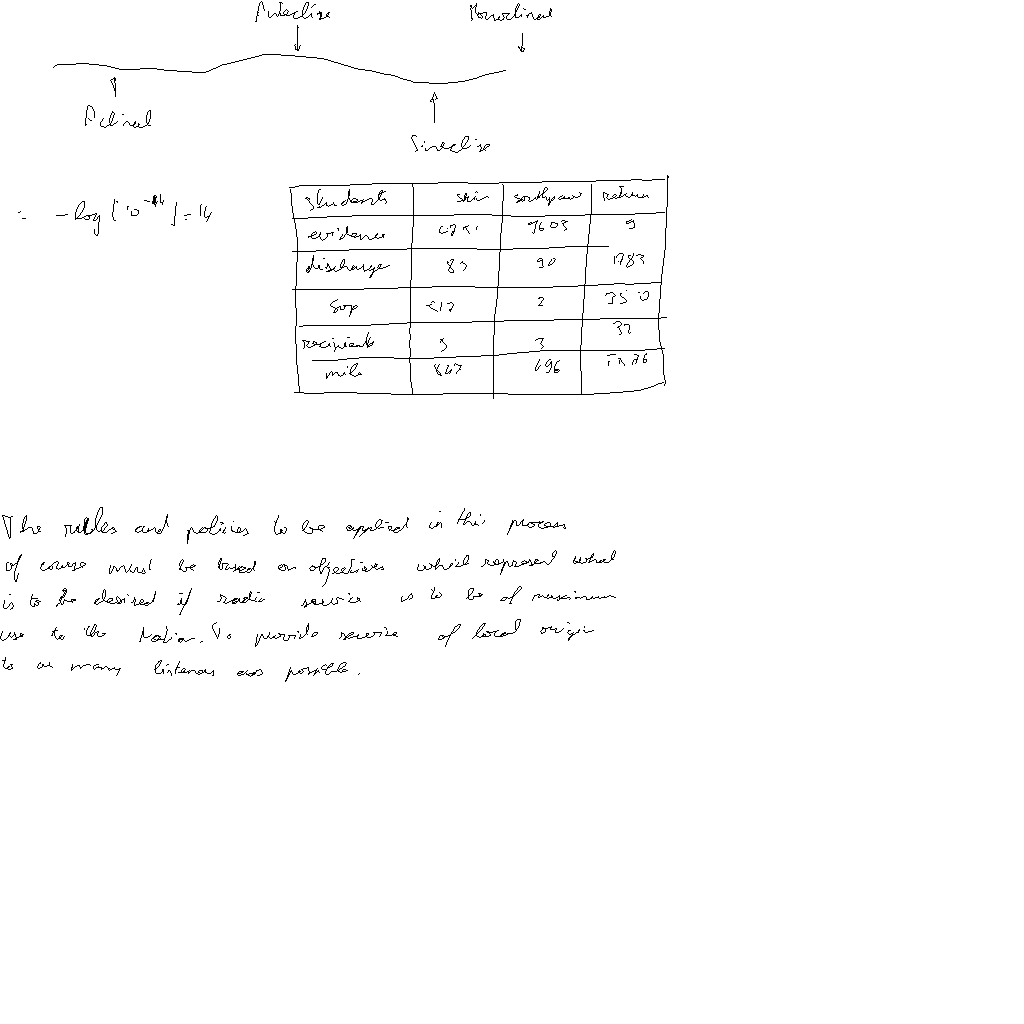 Anteclise Monoclinal
Aclinal
Sineclise
= -log [10^-14] = 14
students skin southpaw return
evidence 9603 9
discharge 83 90 1783
Sop 2 3550
recipients 5 3 32
mile 847 696
The rules and policies to be applied in this process
of course must be based on objectives which represent what
is to be desired if radio service is to be of maximum
use to the Nation. To provide service of local origin
to as many listeners as possible.